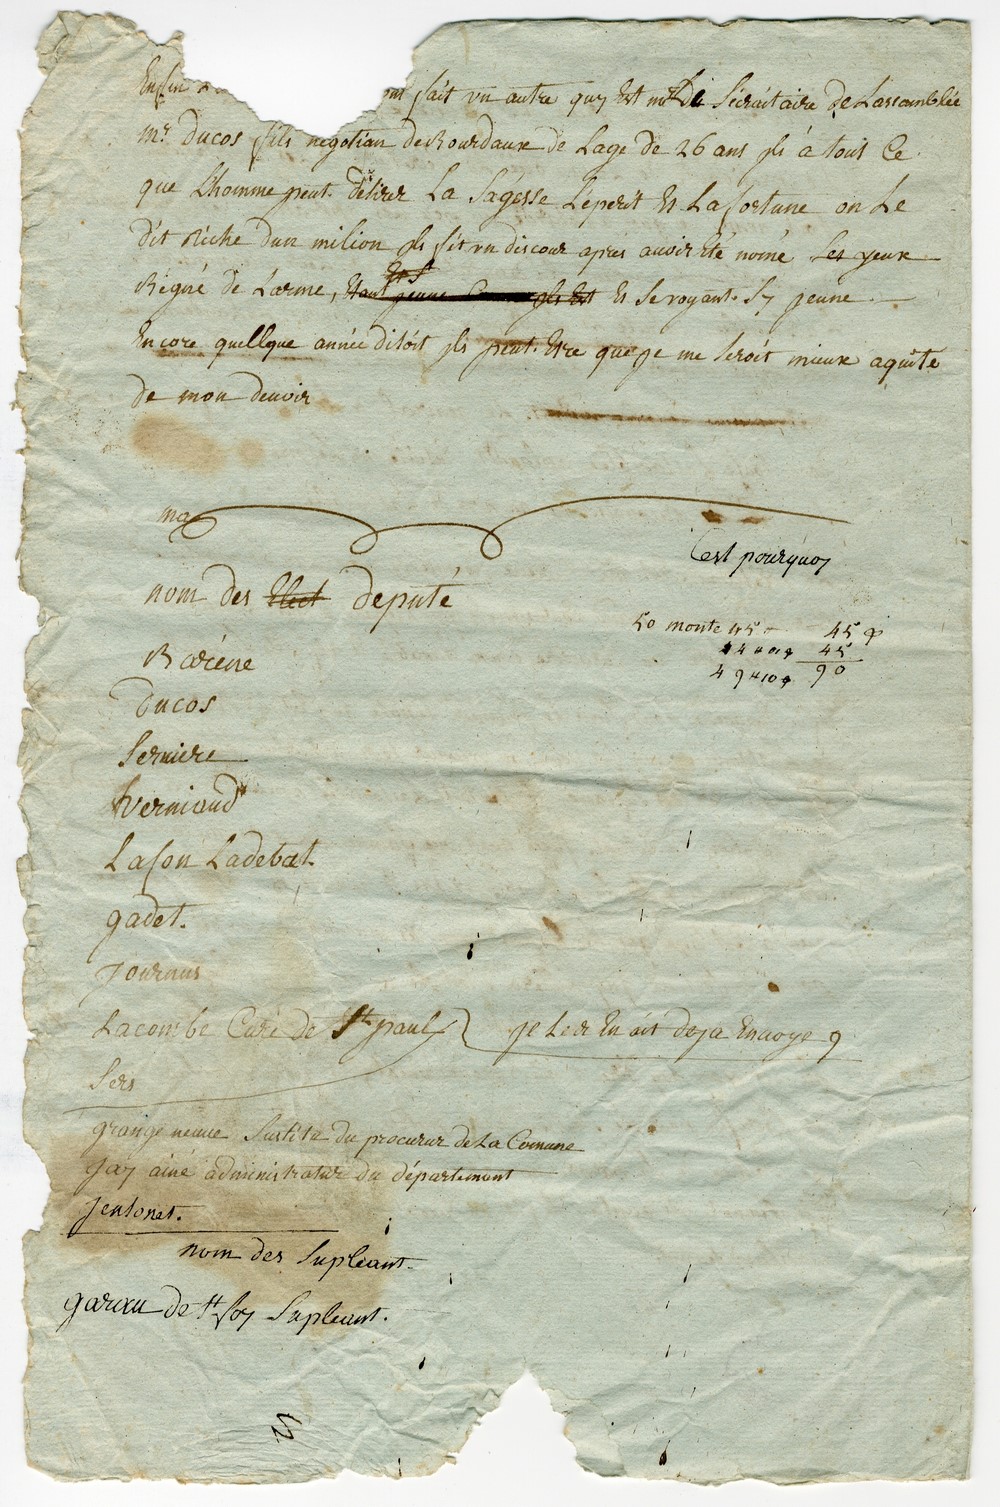 Enfin ont fait vn autre quy Est mr De Sécraitaire de Lassamblée
mr Ducos fils negotian de Bourdaux de Lage de 26 ans jls á tout Ce
que L'homme peut désirer La Sagesse L'eperit Et La fortune on Le
dit Riche d'un milion jls fit vn discour apres auoir Eté nomé Les yeux
Béigné de Larme, Etant jeune Comme jls Est Et Se voyant Sy jeune
Encore quellque année disoit jls peut Etre que je me Seroit mieux aquité
de mon deuoir
ma
C'est pourquoy
nom des Elect deputé
50 monte 45
45
4 # 10
45
49 # 10
90
Baréne
Ducos
Serviere
Verniaud
Lafon Ladebat
gadet.
Journus
Lacombe Curé de St paul je Le di En ait deja Enuoye 9
Sers
grange neuue Sustité du procurur de La Comune
Jay ainé administratur du département
Jentonet.
nom des Supleant
garau de St foy Supleant.